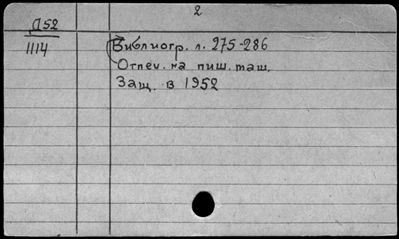 2
Д52
1114
Библиогр. л. 275-286
Отпеч. на пиш. маш.
Защ. в 1952